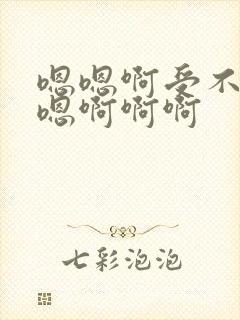 嗯嗯啊受不
嗯啊啊啊
七彩泡泡